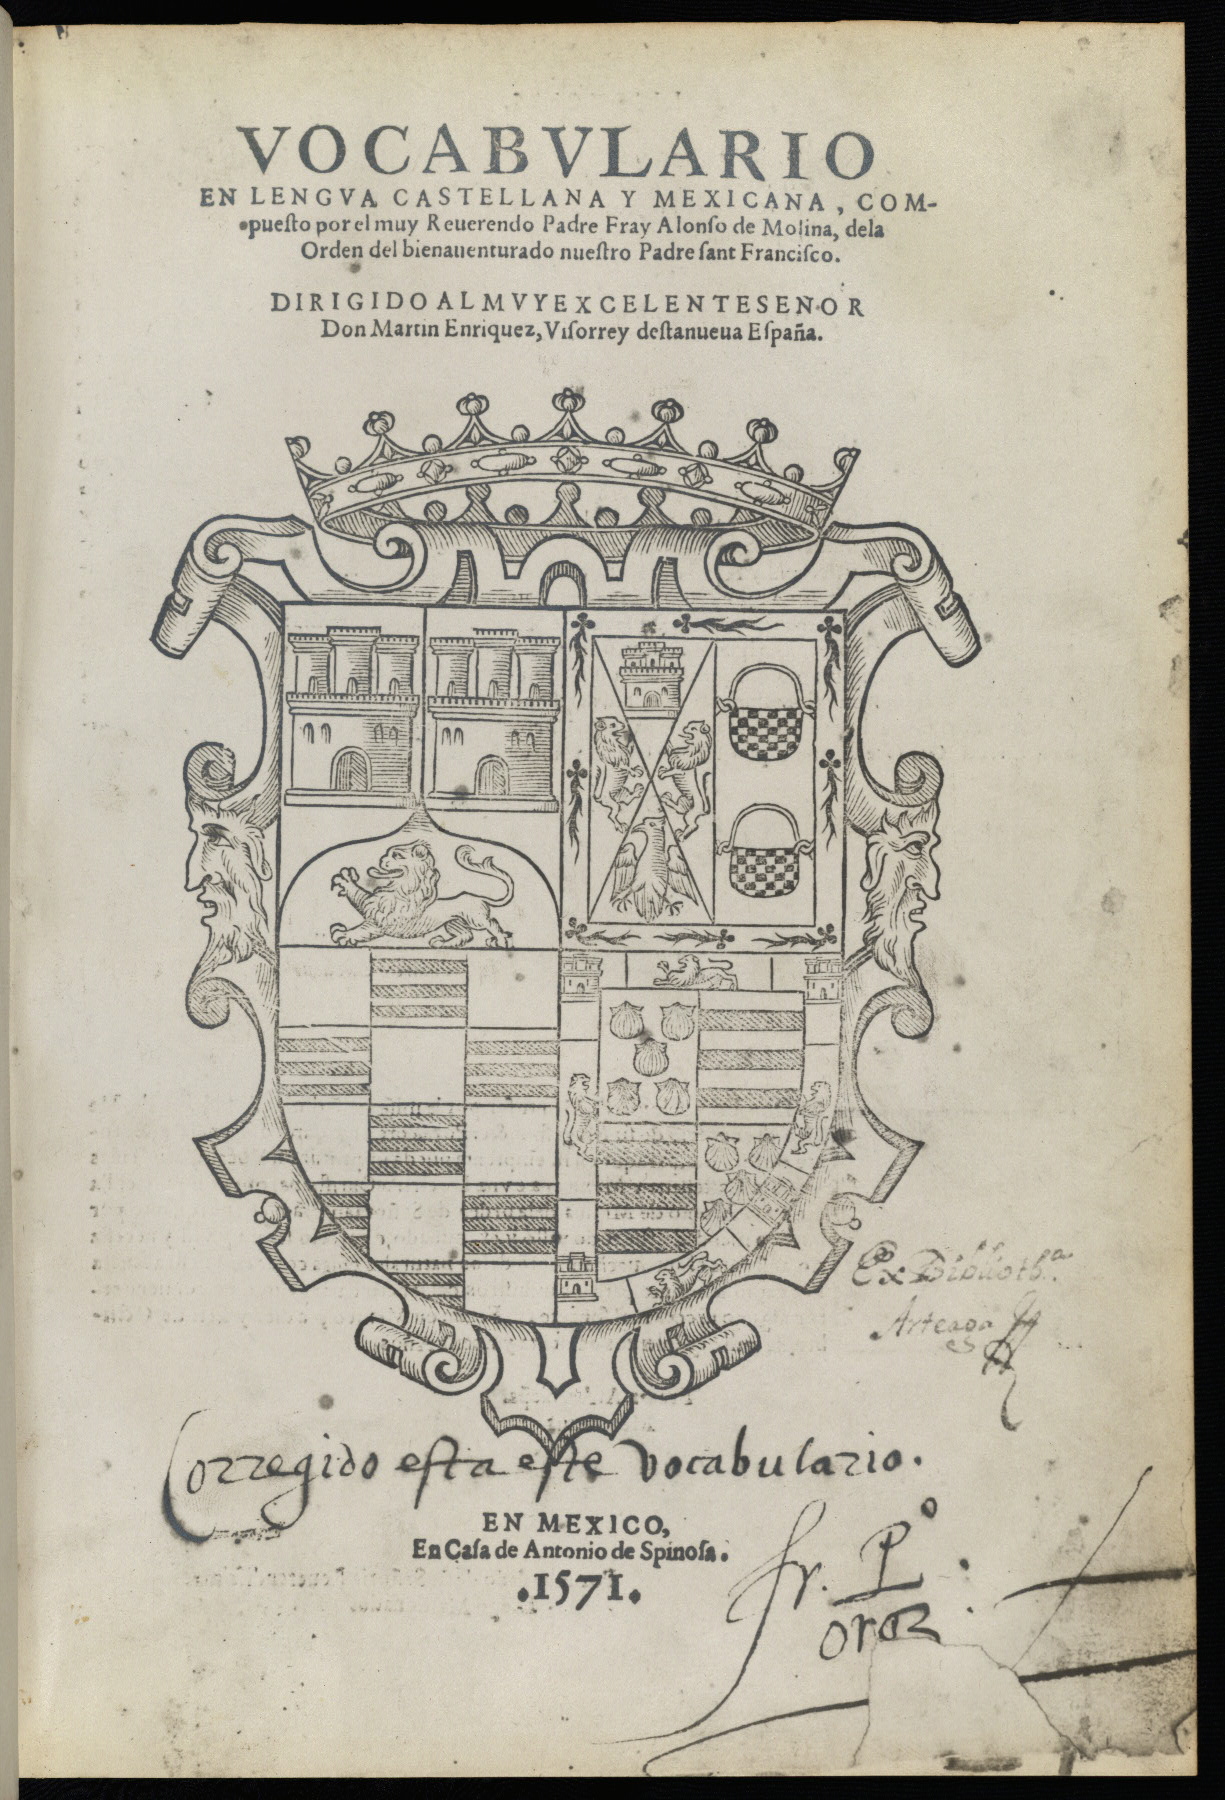 VOCABVLARIO
EN LENGVA CASTELLANA Y MEXICANA, COM-
pueſto por el muy Reuerendo Padre Fray Alonſo de Molina, dela
Orden del bienauenturado nueſtro Padre ſant Franciſco.
DIRIGIDO AL MVY EXCELENTE SENOR
Don Martin Enriquez, Viſorrey deſtanueua Eſpaña.
Ex Biblioth.ª
Arteaga
Corregido eſta eſte vocabulario.
EN MEXICO,
En Caſa de Antonio de Spinoſa.
.1571.
fr. P.º
oroz